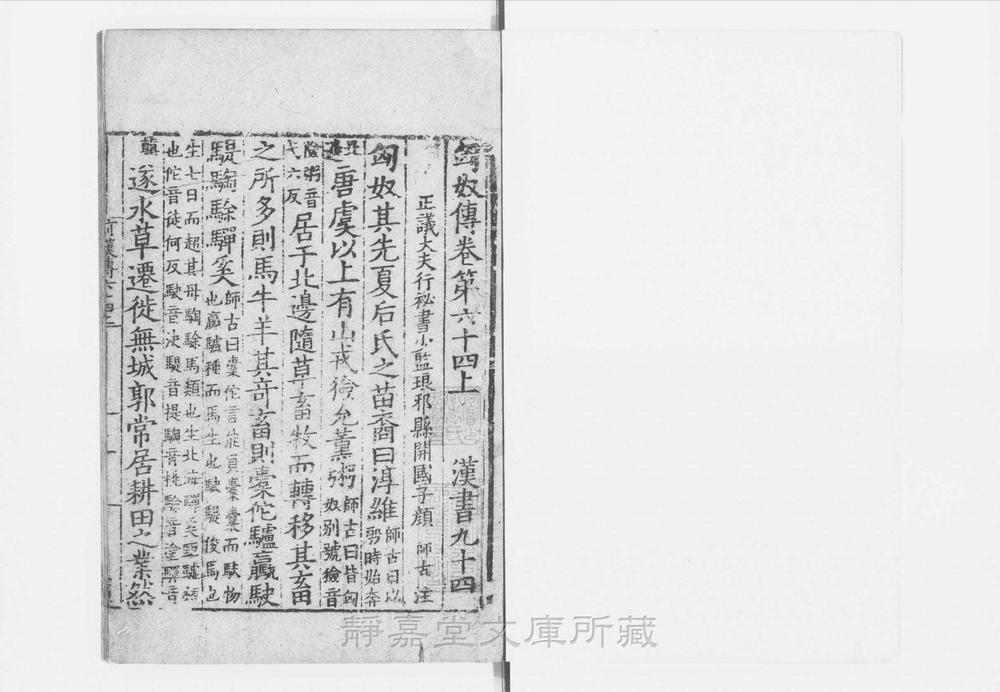 匈奴傳卷第六十四上 漢書九十四
正議大夫行祕書少監琅邪縣開國子顏 師古 注
匈奴其先夏后氏之苗裔曰淳維 師古曰以殷時始奔北邊
唐虞以上有山戎獫允薰粥 師古曰皆匈奴別號獫音險粥音弋六反
居于北邊隨草畜牧而轉移其畜
之所多則馬牛羊其奇畜則橐佗驢驘駃
騠騊駼驒奚 師古曰橐佗言能負橐囊而馱物也驘驢種而馬生也駃騠俊馬也
生七日而超其母騊駼馬類也生北海驒奚駏驢類也佗音徒何反駃音決騠音提騊音桃駼音塗驒音顛
逐水草遷徙無城郭常居耕田之業然
靜嘉堂文庫所藏